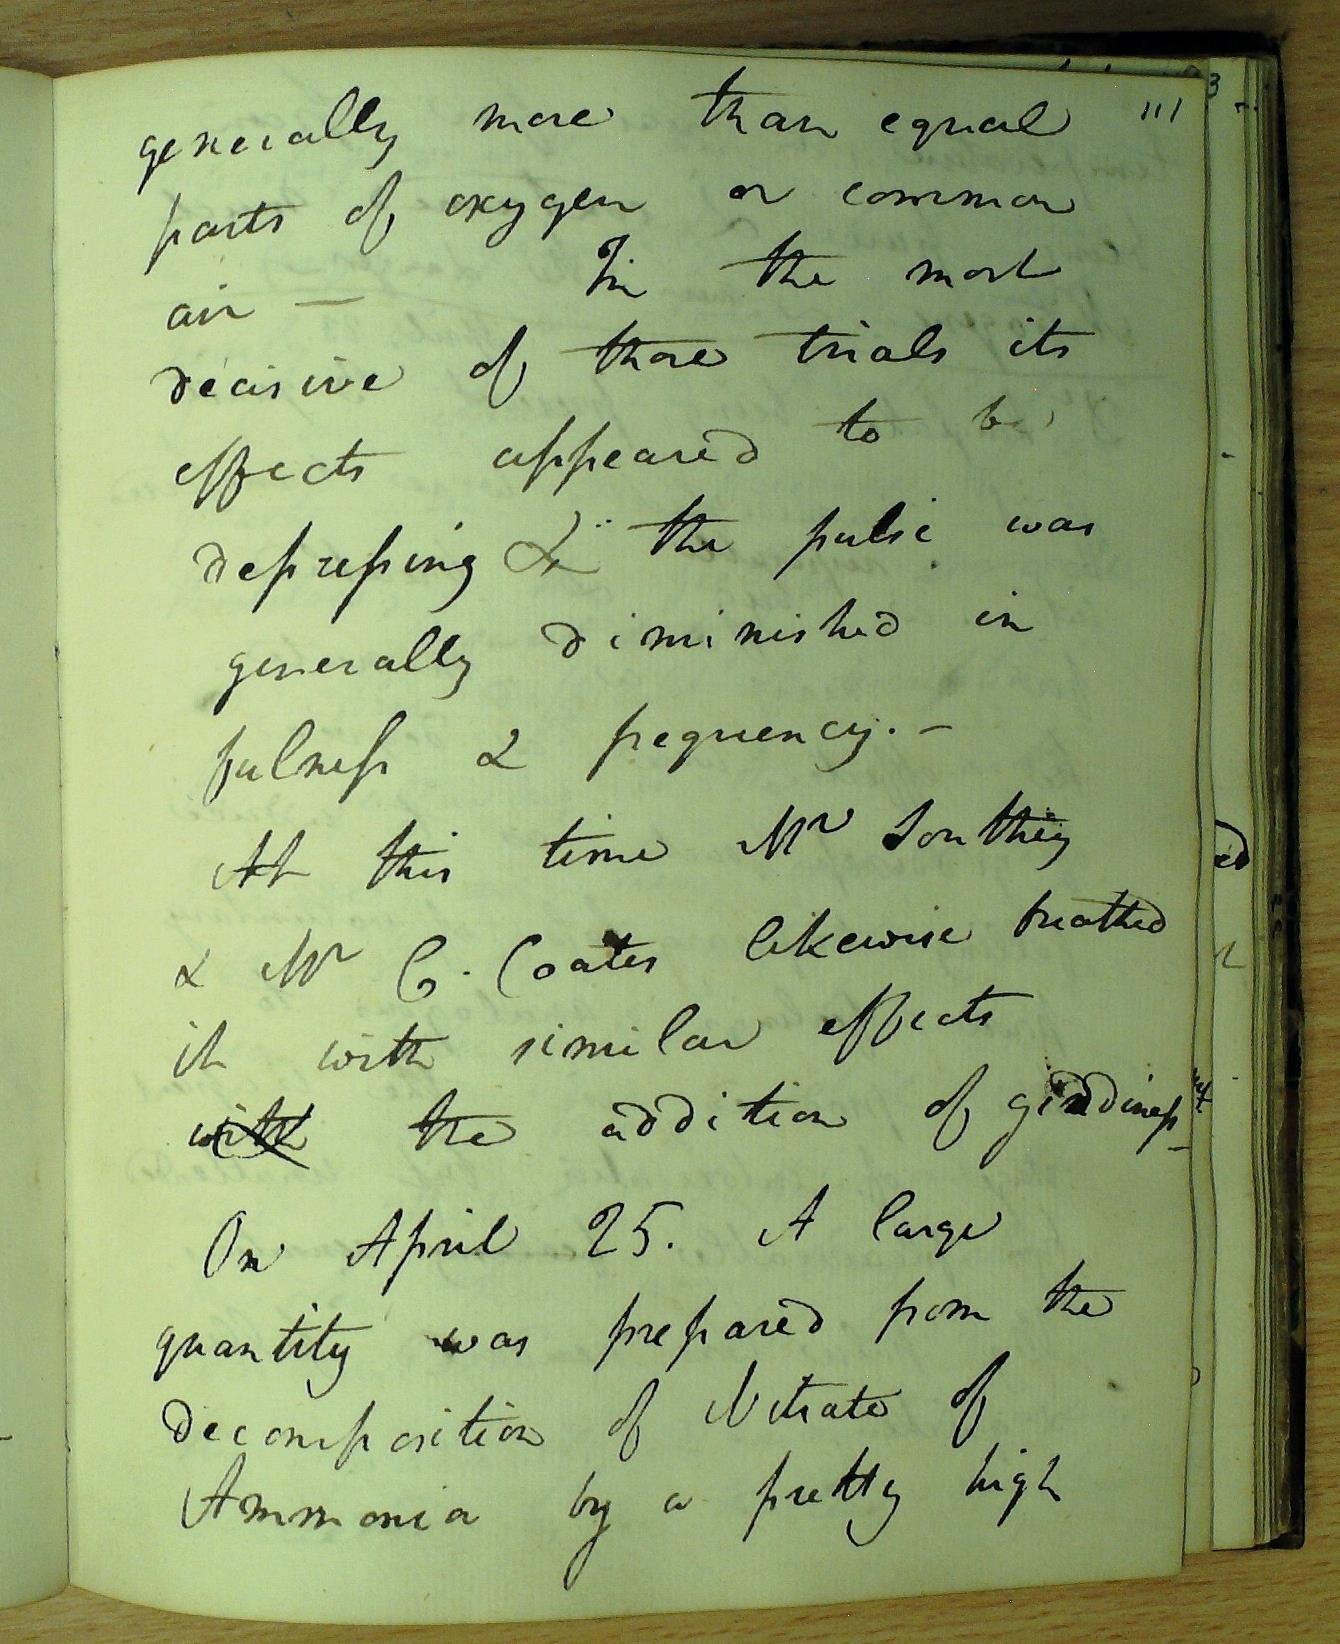 111
generally more than equal
parts of oxygen or common
air — In the most
decisive of those trials its
effects appeared to be
depressing & the pulse was
generally diminished in
fulness & frequency. —
At this time Mr Southey
& Mr C. Coates likewise breathed
it with similar effects
with the addition of giddiness
On April 25. A large
quantity was prepared from the
decomposition of Nitrate of
Ammonia by a pretty high